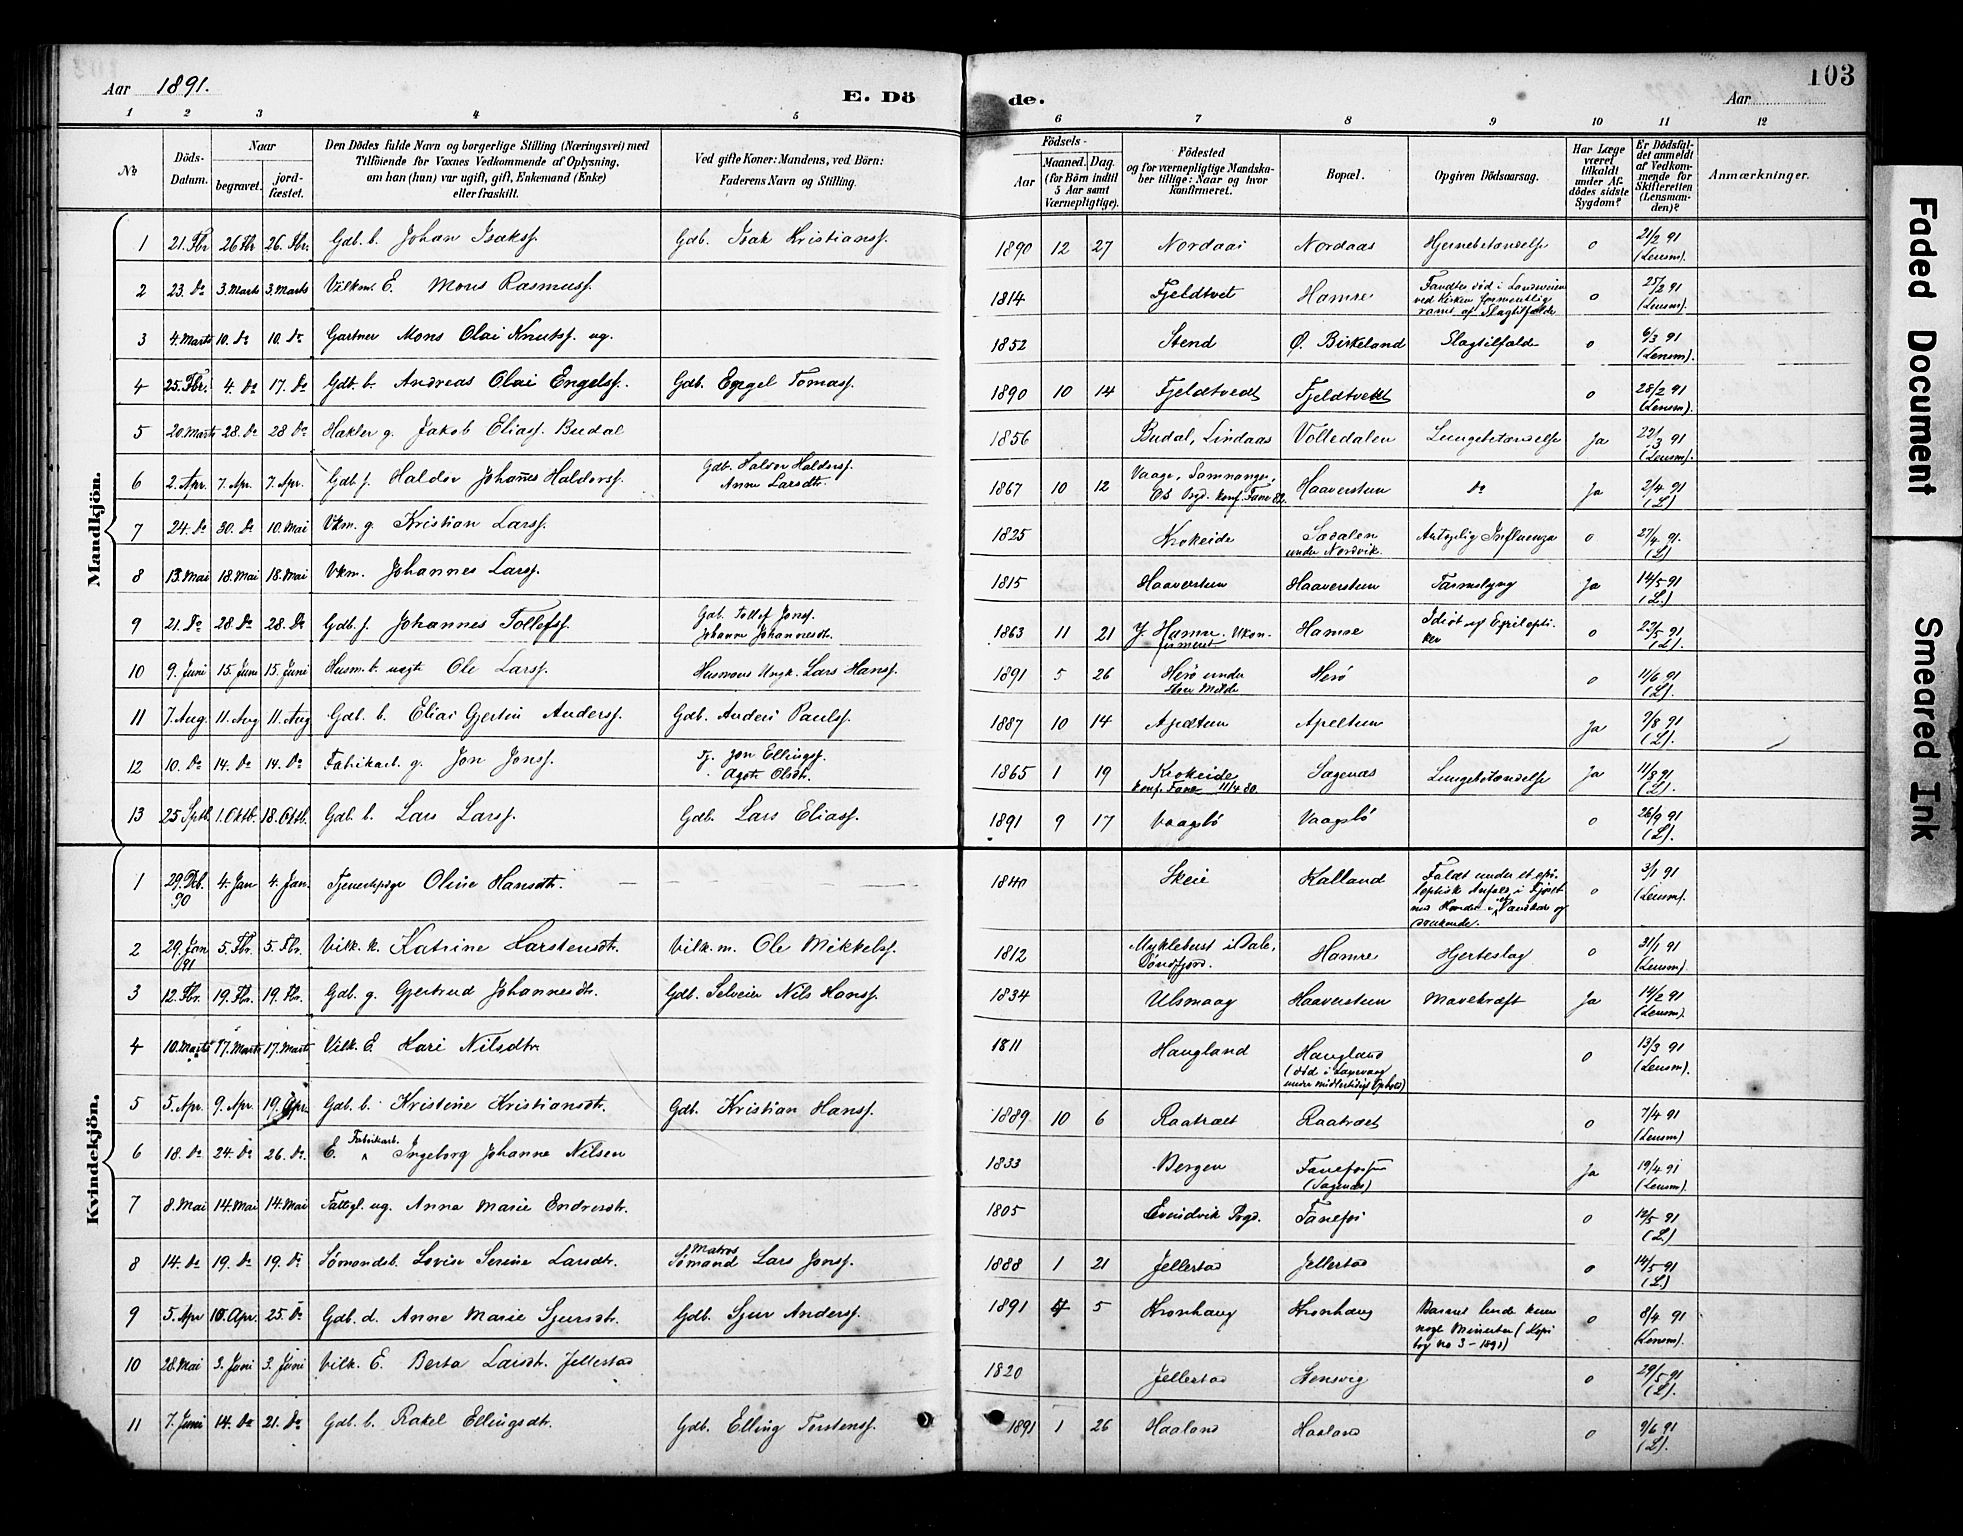 Aar 1891.
E. Döde.
103
Aar
1 2 3 4 5 6 7 8 9 10 11 12
No
Döds-Datum.
Naar
begravet.
jordfæstet.
Den Dödes fulde Navn og borgerlige Stilling (Næringsvei) med Tilföiende for Voxnes Vedkommende af Oplysning, om han (hun) var ugift, gift, Enkemand (Enke) eller fraskilt.
Ved gifte Koner: Mandens, ved Börn: Faderens Navn og Stilling.
Födsels-
Aar
Maaned. Dag.
(for Börn indtil 5 Aar samt Værnepligtige).
Födested og for værnepligtige Mandskaber tillige: Naar og hvor konfirmeret.
Bopæl.
Opgiven Dödsaarsag.
Har Læge været tilkaldt under Afdödes sidste Sygdom?
Er Dödsfaldet anmeldt af Vedkommende for Skifteretten (Lensmanden)?
Anmærkninger.
Mandkjön.
1 21. Fbr 26 Fbr 26. Fbr. Gdb. b. Johan Isaksf. Gdb. Isak Kristiansf. 1890 12 27 Nordaas Nordaas Hjernebetændelse o 21/2 91 (Lensm).
2 23. Do 3. Marts 3. Marts Vilkm. E. Mons Rasmusf. 1814 Fjeldtvet Hamre Fandtes död i Landeveien ved Kirken formentlig ramt af Slagtilfælde o 25/2 91 (Lensm).
3 4. Marts 10. Do 10. Do Gartner Mons Olai Knutsf. ug. 1852 Stend Ø. Birkeland Slagtilfælde o 6/3 91 (Lensm).
4 25. Fbr. 4. Do 17. Do Gdb. b. Andreas Olai Engelsf. Gdb. Engel Tomasf. 1890 10 14 Fjeldtvedt Fjeldtvedt o 28/2 91 (Lensm).
5 20. Marts 28. Do 28 Do Hakler g. Jakob Eliasf. Budal 1856 Budal, Lindaas Volledalen Lungebetændelse Ja 22/3 91 (Lensm).
6 2. Apr. 7. Apr. 7. Apr. Gdb. f. Haldor Johannes Haldorsf. Gdb. Haldor Haldorsf. Anne Larsdt. 1867 10 12 Vaage, Samnanger, Os Prgd. konf. Fane 82. Haaversteen Do Ja 2/4 91 (L)
7 24. Do 30. Do 10. Mai Vkm. g. Kristian Larsf. 1825 Krokeide Sædalen under Nordvik. Antagelig Influenza o 27/4. 91. (L)
8 13. Mai 18. Mai 18. Mai Vkm. Johannes Larsf. 1815 Haaversteen Haaversteen Tarmslyng Ja 14/5 91 (L.)
9 21. Do 28. Do 28. Do Gdb. f. Johannes Tollefsf. Gdb. Tollef Jonsf. Johanne Johannesdt. 1863 11 21 Y. Hamre. Ukonfirmeret Hamre Idiot og Epileptiker o 23/5 91 (L).
10 9. Juni 15. Juni 15. Juni Husm. b. uægte Ole Larsf. Husmans Ungk. Lars Hansf. 1891 5 26 Herö under Store Milde Herö o 11/6 91 (L).
11 7. Aug. 11. Aug 11. Aug Gdb. b. Elias Gjertin Andersf. Gdb. Anders Paulsf. 1887 10 14 Apeltun Apeltun Ja 9/8 91 (L).
12 10. Do 14. Do 14. Do Fabrikarb. g. Jon Jonsf. Tj. Jon Ellingsf. Agote Olsdt. 1865 1 19 Krokeide konf. Fane 11/4 80. Sagenæs Lungebetændelse Ja 11/8 91 (L).
13 25 Sptb. 1. Oktb. 18. Oktb. Gdb. b. Lars Larsf. Gdb. Lars Eliasf. 1891 9 17 Vaagsbö Vaagsbö o 26/9 91 (L).
Kvindekjön.
1 29. Db. 90 4. Jan 4. Jan. Tjenestepige Oline Hansdt. 1840 Skeie Kalland Faldt under et epileptisk Anfald i Fjøset med Hovedet i et Vandkar og druknede. o 3/1 91 (Lensm).
2 29. Jan 91 5. Fbr. 5. Fbr. Vilk. k. Katrine Karstensdt. Vilk. m. Ole Mikkelsf. 1812 Myklebust i Dale, Söndfjord. Hamre Hjerteslag o 31/1 91 (Lensm)
3 12. Fbr. 19. Fbr. 19. Fbr. Gdb. g. Gjertrud Johannesdt. Gdb. Selveier Nils Hansf. 1834 Ulsmaag Haaversteen Mavekræft Ja 14/2 91 (Lensm).
4 10. Marts 17. Marts 17. Marts Vilk. E. Kari Nilsdtr. 1811 Haugland Haugland (död i under midlertidigt Ophold) o 13/3 91 (Lensm).
5 5. Apr. 9. Apr. 19. Apr. Gdb. b. Kristine Kristiansdt. Gdb. Kristian Hansf. 1889 10 6 Raatræet Raatræet o 7/4 91 (Lensm)
6 18. Do 24. Do 26. Do. E. Fabrikarb. Ingeborg Johanne Nilsen 1833 Bergen Fanefos (Sagenæs) Ja 19/4 91 (Lensm).
7 8. Mai 14. Mai 14. Mai Fattigl. ug. Anna Marie Endresdt. 1805 Evindvik Prgd. Fanefos o 12/5 91 (L.)
8 14. Do 19. Do 19. Do Sömandsb. Lovise Serine Larsdt. Matros Sömand Lars Jonsf. 1888 1 21 Jellestad Jellestad o 14/5 91 (L)
9 5. Apr 10. Apr. 25. Do Gdb. d. Anne Marie Sjursdt. Gdb. Sjur Andersf. 1891 4 5 Kronhaug Kronhaug Barnet levede kun nogle Minuter (Kopibog no 3 - 1891) o 8/4 91 (Lensm).
10 28. Mai 3. Juni 3. Juni Vilk. E. Berta Larsdt. Jellestad 1820 Jellestad Stensvig o 29/5 91 (L).
11 7. Juni 14. Do 21. Do Gdb. b. Rakel Ellingsdtr. Gdb. Elling Torstensf. 1891 1 26 Haaland Haaland o 9/6 91 (L).
Faded Document
Smeared Ink